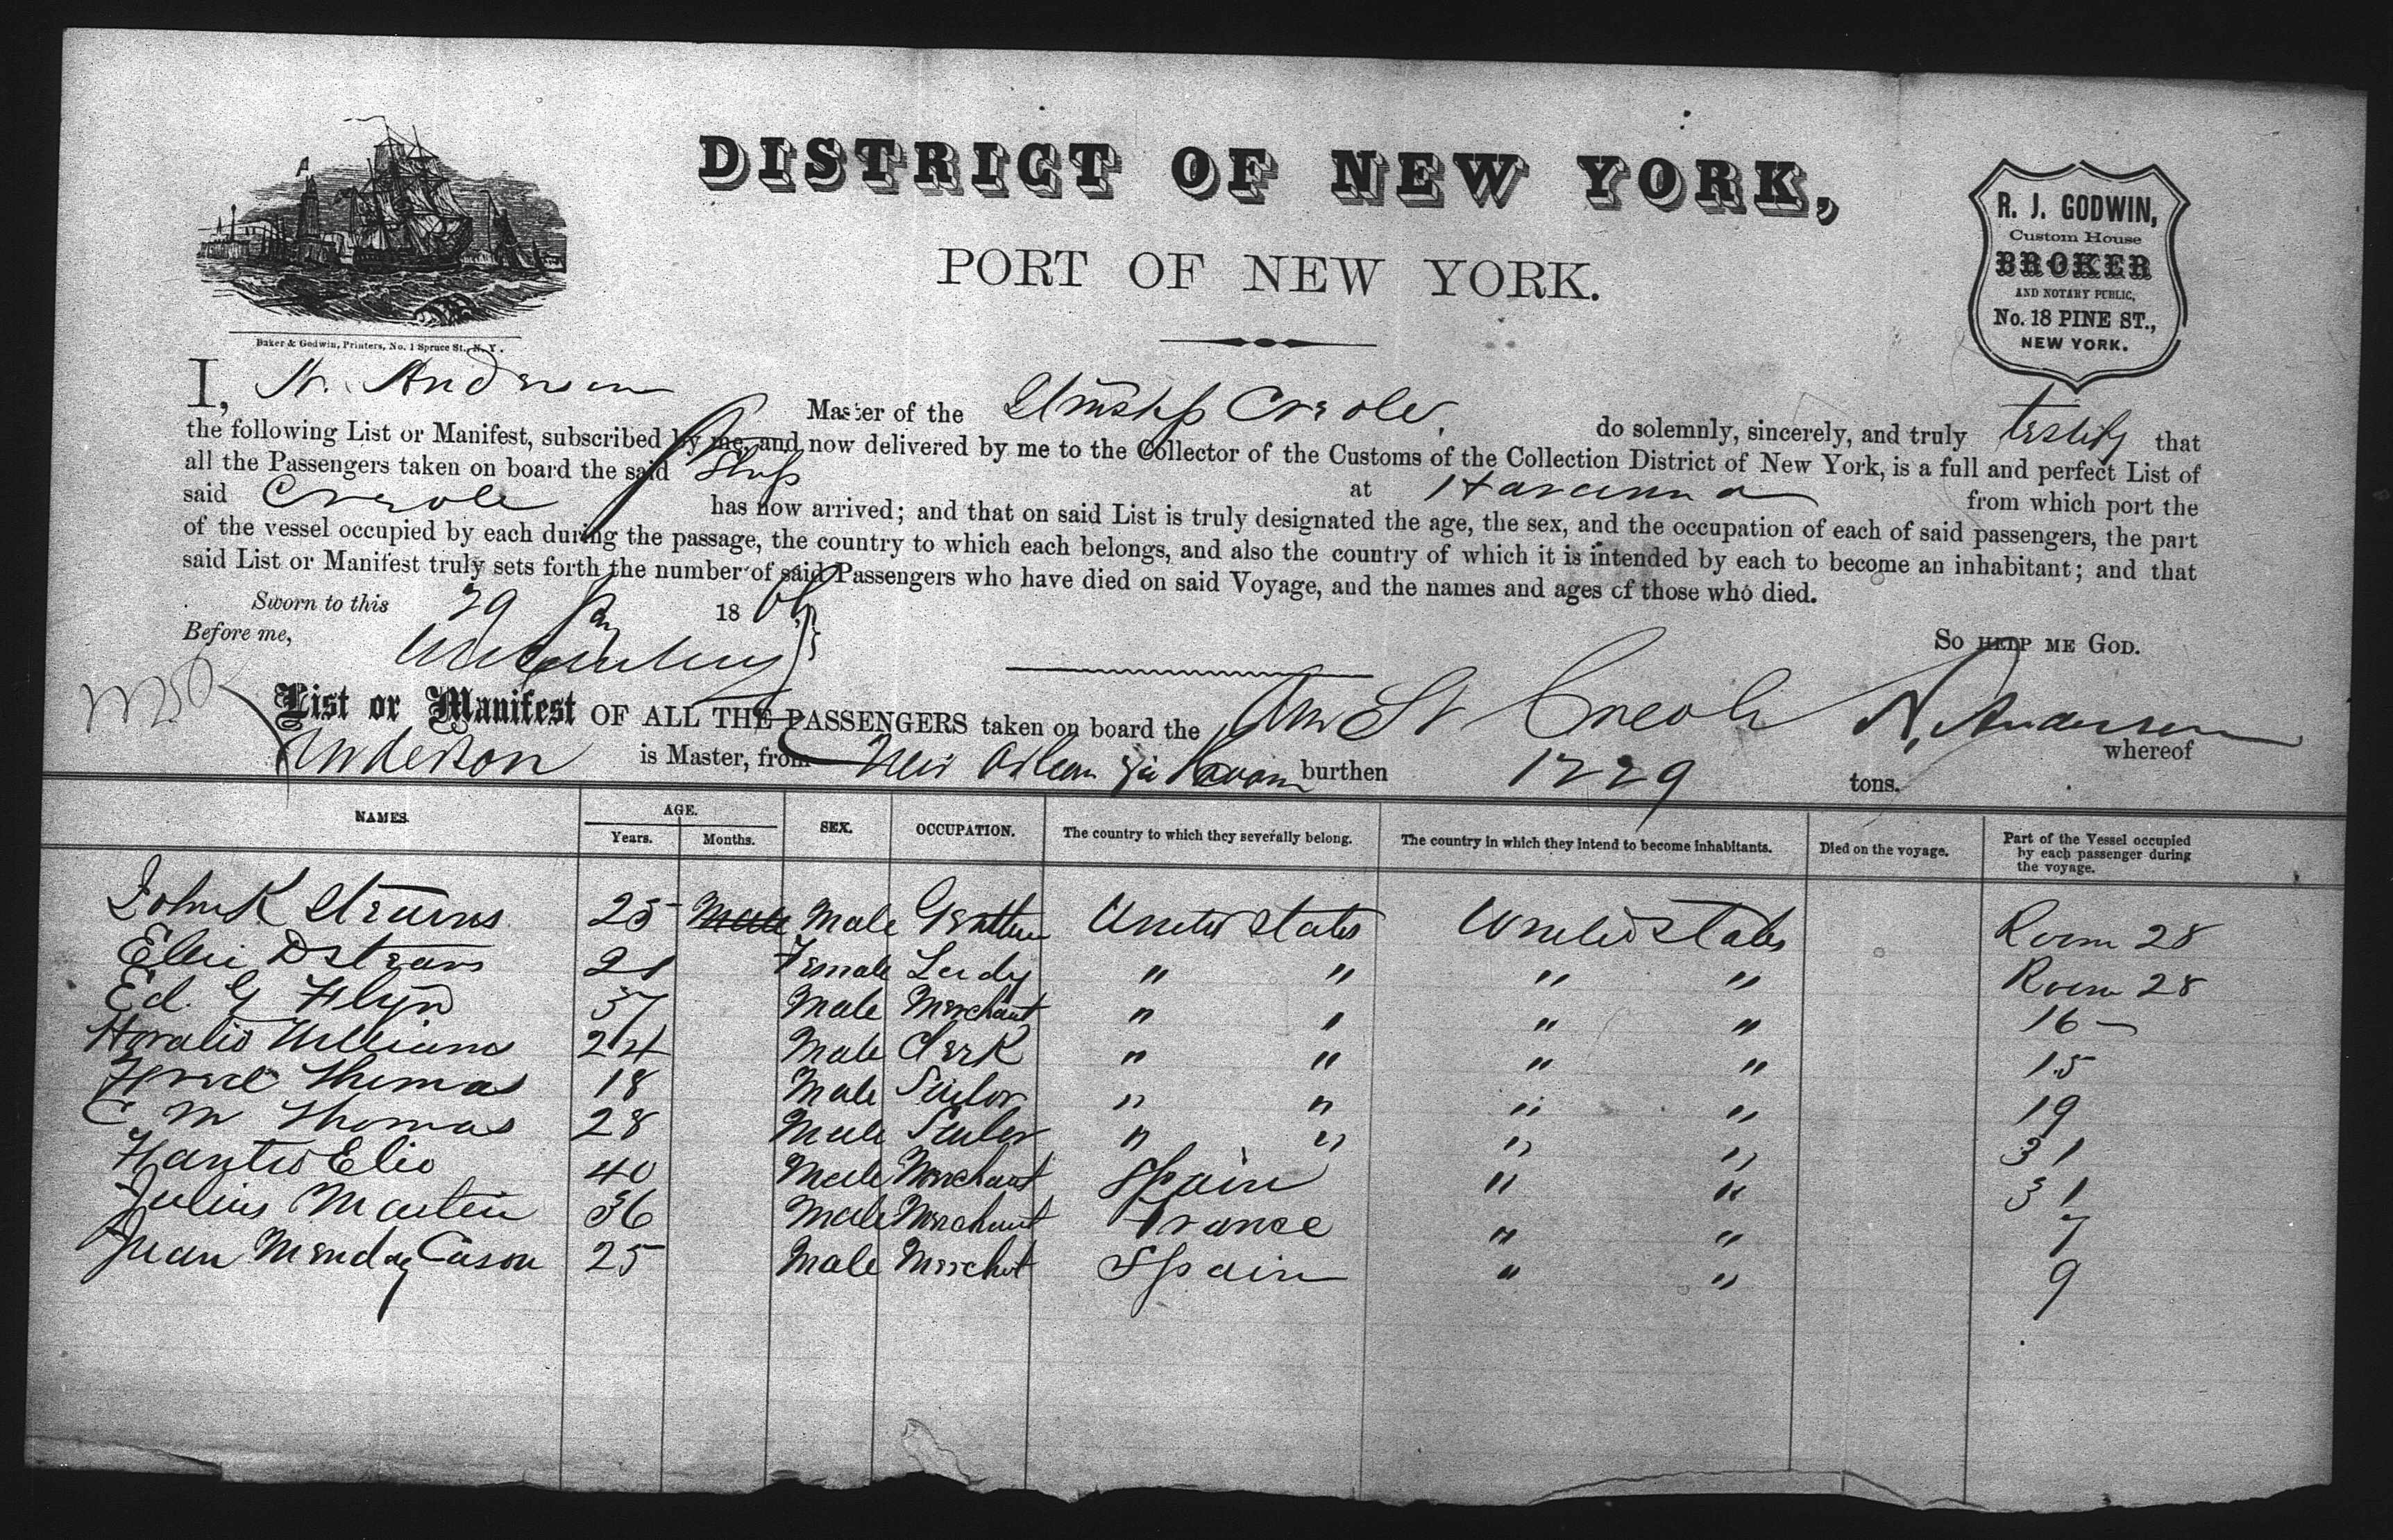 DISTRICT OF NEW YORK,
PORT OF NEW YORK.
R. J. GODWIN,
Custom House
BROKER
AND NOTARY PUBLIC,
No. 18 PINE ST.,
NEW YORK.
Baker & Godwin, Printers, No. 1 Spruce St., N. Y.
I, N. Anderson Master of the Stmshp Creole, do solemnly, sincerely, and truly testify that
the following List or Manifest, subscribed by me, and now delivered by me to the Collector of the Customs of the Collection District of New York, is a full and perfect List of
all the Passengers taken on board the said Ship at Havanna from which port the
said Creole has now arrived; and that on said List is truly designated the age, the sex, and the occupation of each of said passengers, the part
of the vessel occupied by each during the passage, the country to which each belongs, and also the country of which it is intended by each to become an inhabitant; and that
said List or Manifest truly sets forth the number of said Passengers who have died on said Voyage, and the names and ages of those who died.
Sworn to this 29 Jan 1866 So HELP ME GOD.
Before me,
List or Manifest OF ALL THE PASSENGERS taken on board the Am St Creole N. Anderson whereof
Anderson is Master, from New Orlean via Havana burthen 1229 tons.
NAMES. AGE. Years. Months. SEX. OCCUPATION. The country to which they severally belong. The country in which they intend to become inhabitants. Died on the voyage. Part of the Vessel occupied by each passenger during the voyage.
John K Stearns 25 Male Male Gentlem United States United States Room 28
Ellie D Stearns 21 Female Lady " " " " Room 28
Ed. G Flynn 37 Male Merchant " " " " 16
Horatio Williams 24 Male Clerk " " " " 15
Thomas 18 Male Sailor " " " " 19
C M Thomas 28 Male Sailor " " " " 31
Elio 40 Male Merchant Spain " " 31
Julius Martein 36 Male Merchant France " " 7
Juan Menday Cason 25 Male Merchnt Spain " " 9